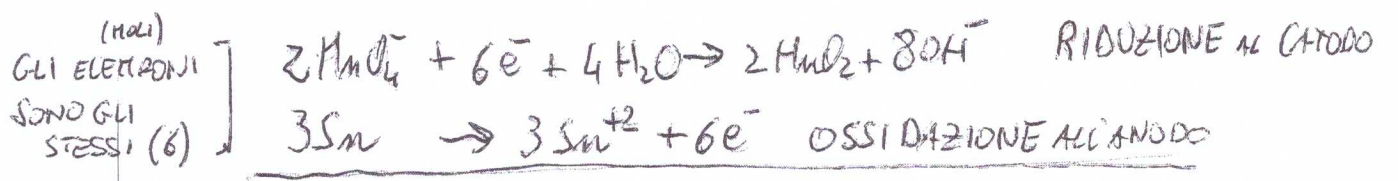 (MOLI)
GLI ELETTRONI
SONO GLI
STESSI (6)
2MnO₄⁻ + 6e⁻ + 4H₂O → 2MnO₂ + 8OH⁻ RIDUZIONE AL CATODO
3Sn → 3Sn⁺² + 6e⁻ OSSIDAZIONE ALL'ANODO